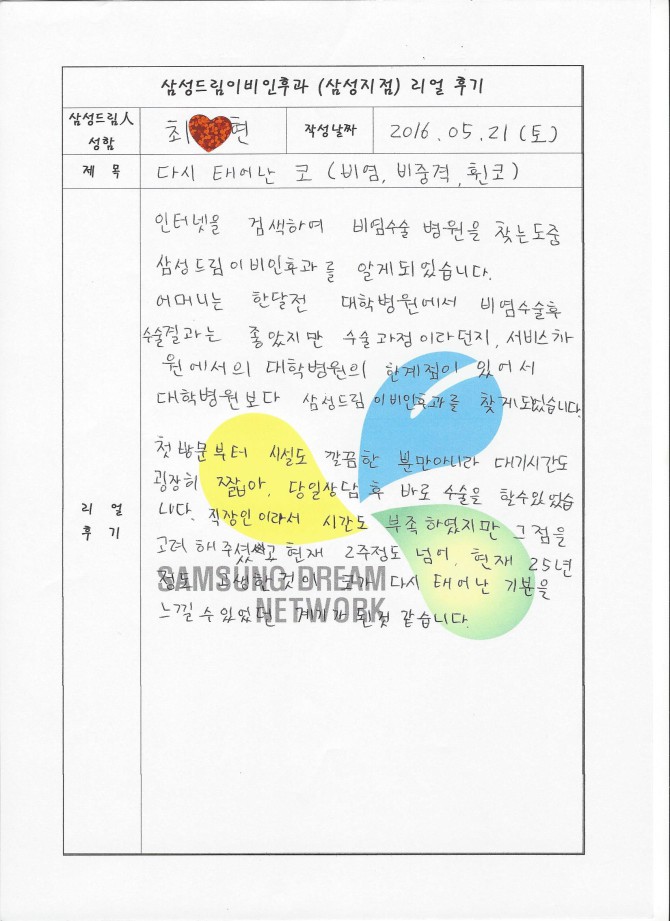 삼성드림이비인후과 (삼성지점) 리얼 후기
삼성드림人 성함
최 현
작성날짜
2016.05.21 (토)
제 목
다시 태어난 코 (비염, 비중격, 휜코)
리 얼
후 기
인터넷을 검색하여 비염수술 병원을 찾는도중
삼성드림이비인후과를 알게되었습니다.
어머니는 한달전 대학병원에서 비염수술후
수술결과는 좋았지만 수술과정이라던지, 서비스차
원에서의 대학병원의 한계점이 있어서
대학병원보다 삼성드림이비인후과를 찾게되었습니다.
첫방문부터 시설도 깔끔한 분만아니라 대기시간도
굉장히 짧아, 당일상담후 바로 수술을 할수있었습
니다. 직장인이라서 시간도 부족하였지만 그점을
고려해주셨고 현재 2주정도 넘어, 현재 25년
정도 고생한것이 코가 다시 태어난 기분을
느낄수있었던 계기가 된것 같습니다.
SAMSUNG DREAM
NETWORK